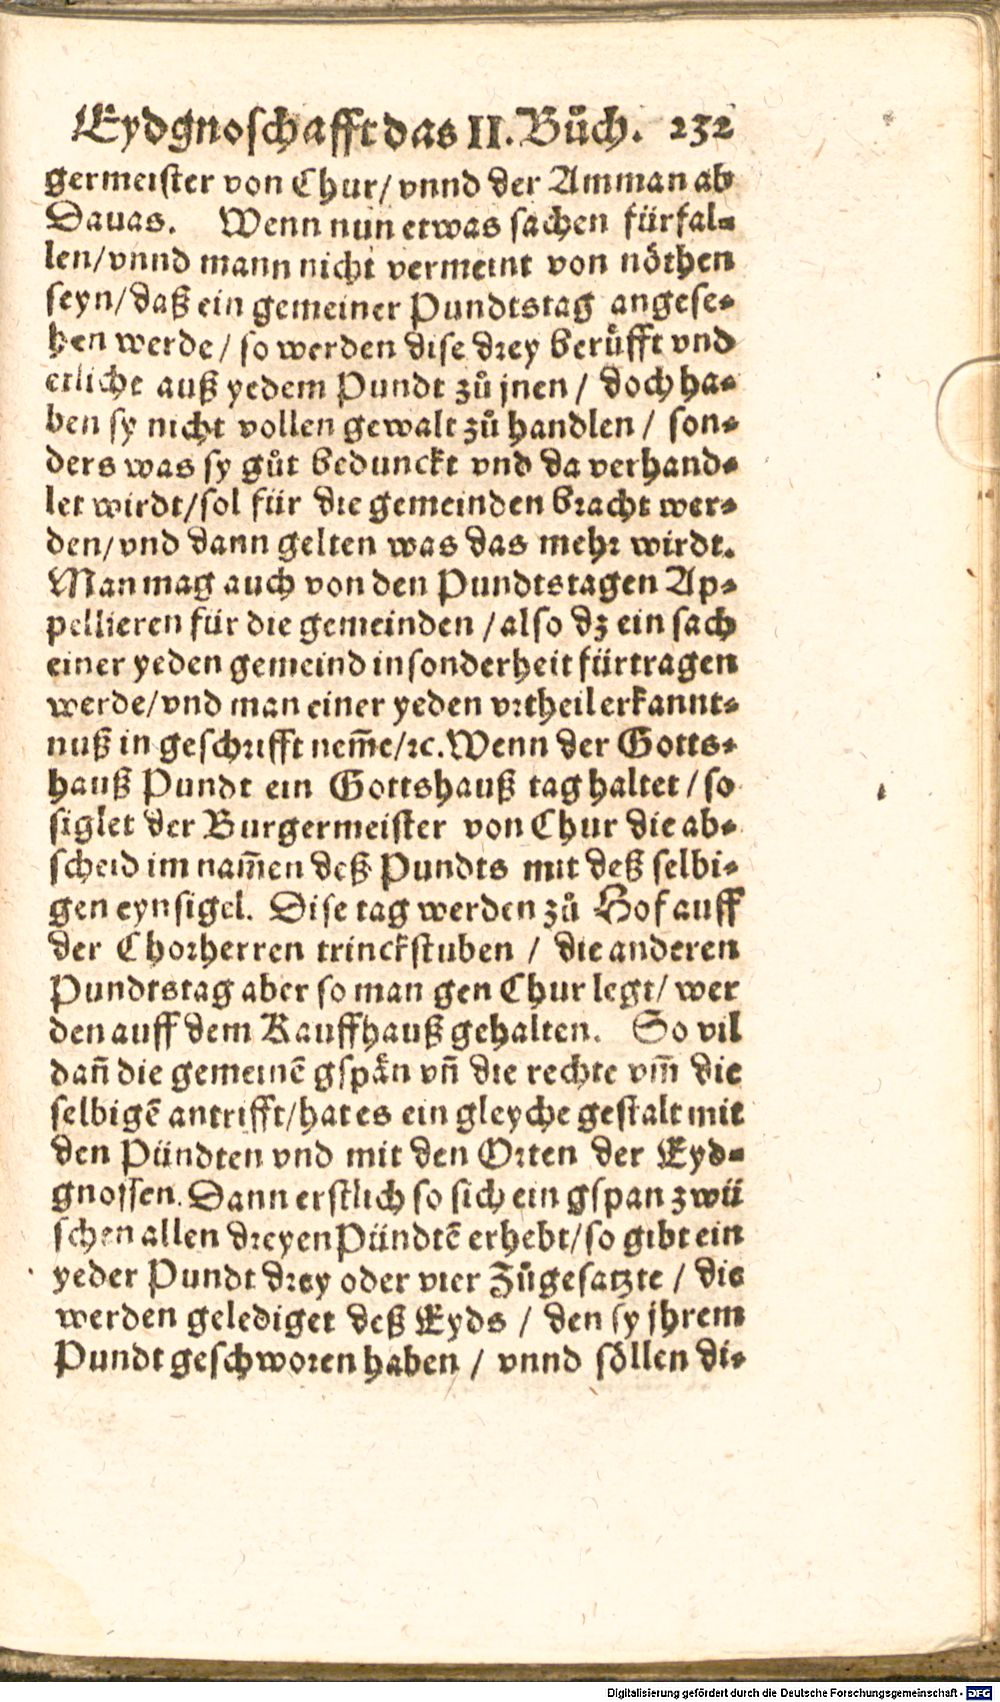 Eydgnoschafft das II. Bůch. 232
germeister von Chur/ vnnd der Amman ab
Dauas. Wenn nun etwas sachen fürfal-
len/vnnd mann nicht vermeint von nöthen
seyn/daß ein gemeiner Pundtstag angese-
hen werde/ so werden dise drey berůfft vnd
etliche auß yedem Pundt zů jnen / doch ha-
ben sy nicht vollen gewalt zů handlen / son-
ders was sy gůt bedunckt vnd da verhand-
let wirdt/sol für die gemeinden bracht wer-
den/vnd dann gelten was das mehr wirdt.
Man mag auch von den Pundtstagen Ap-
pellieren für die gemeinden /also dz ein sach
einer yeden gemeind insonderheit fürtragen
werde/vnd man einer yeden vrtheil erkannt-
nuß in geschrifft nem̃e/ꝛc. Wenn der Gotts-
hauß Pundt ein Gottshauß tag haltet / so
siglet der Burgermeister von Chur die ab-
scheid im nam̃en deß Pundts mit deß selbi-
gen eynsigel. Dise tag werden zů Hof auff
der Chorherren trinckstuben / die anderen
Pundtstag aber so man gen Chur legt/ wer
den auff dem Kauffhauß gehalten. So vil
dañ die gemeinẽ gspån vñ die rechte vm̃ die
selbigẽ antrifft/hat es ein gleyche gestalt mit
den Pündten vnd mit den Orten der Eyd-
gnossen. Dann erstlich so sich ein gspan zwü
schen allen dreyen Pündtẽ erhebt/so gibt ein
yeder Pundt drey oder vier Zůgesatzte / die
werden gelediget deß Eyds / den sy jhrem
Pundt geschworen haben / vnnd söllen di-
Digitalisierung gefördert durch die Deutsche Forschungsgemeinschaft - DFG